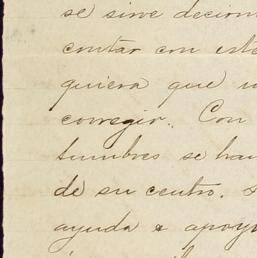 se sirve decirm
contar con este
quiera que
corregir. Con
tumbres se han
de su centro.
ayuda a apoy